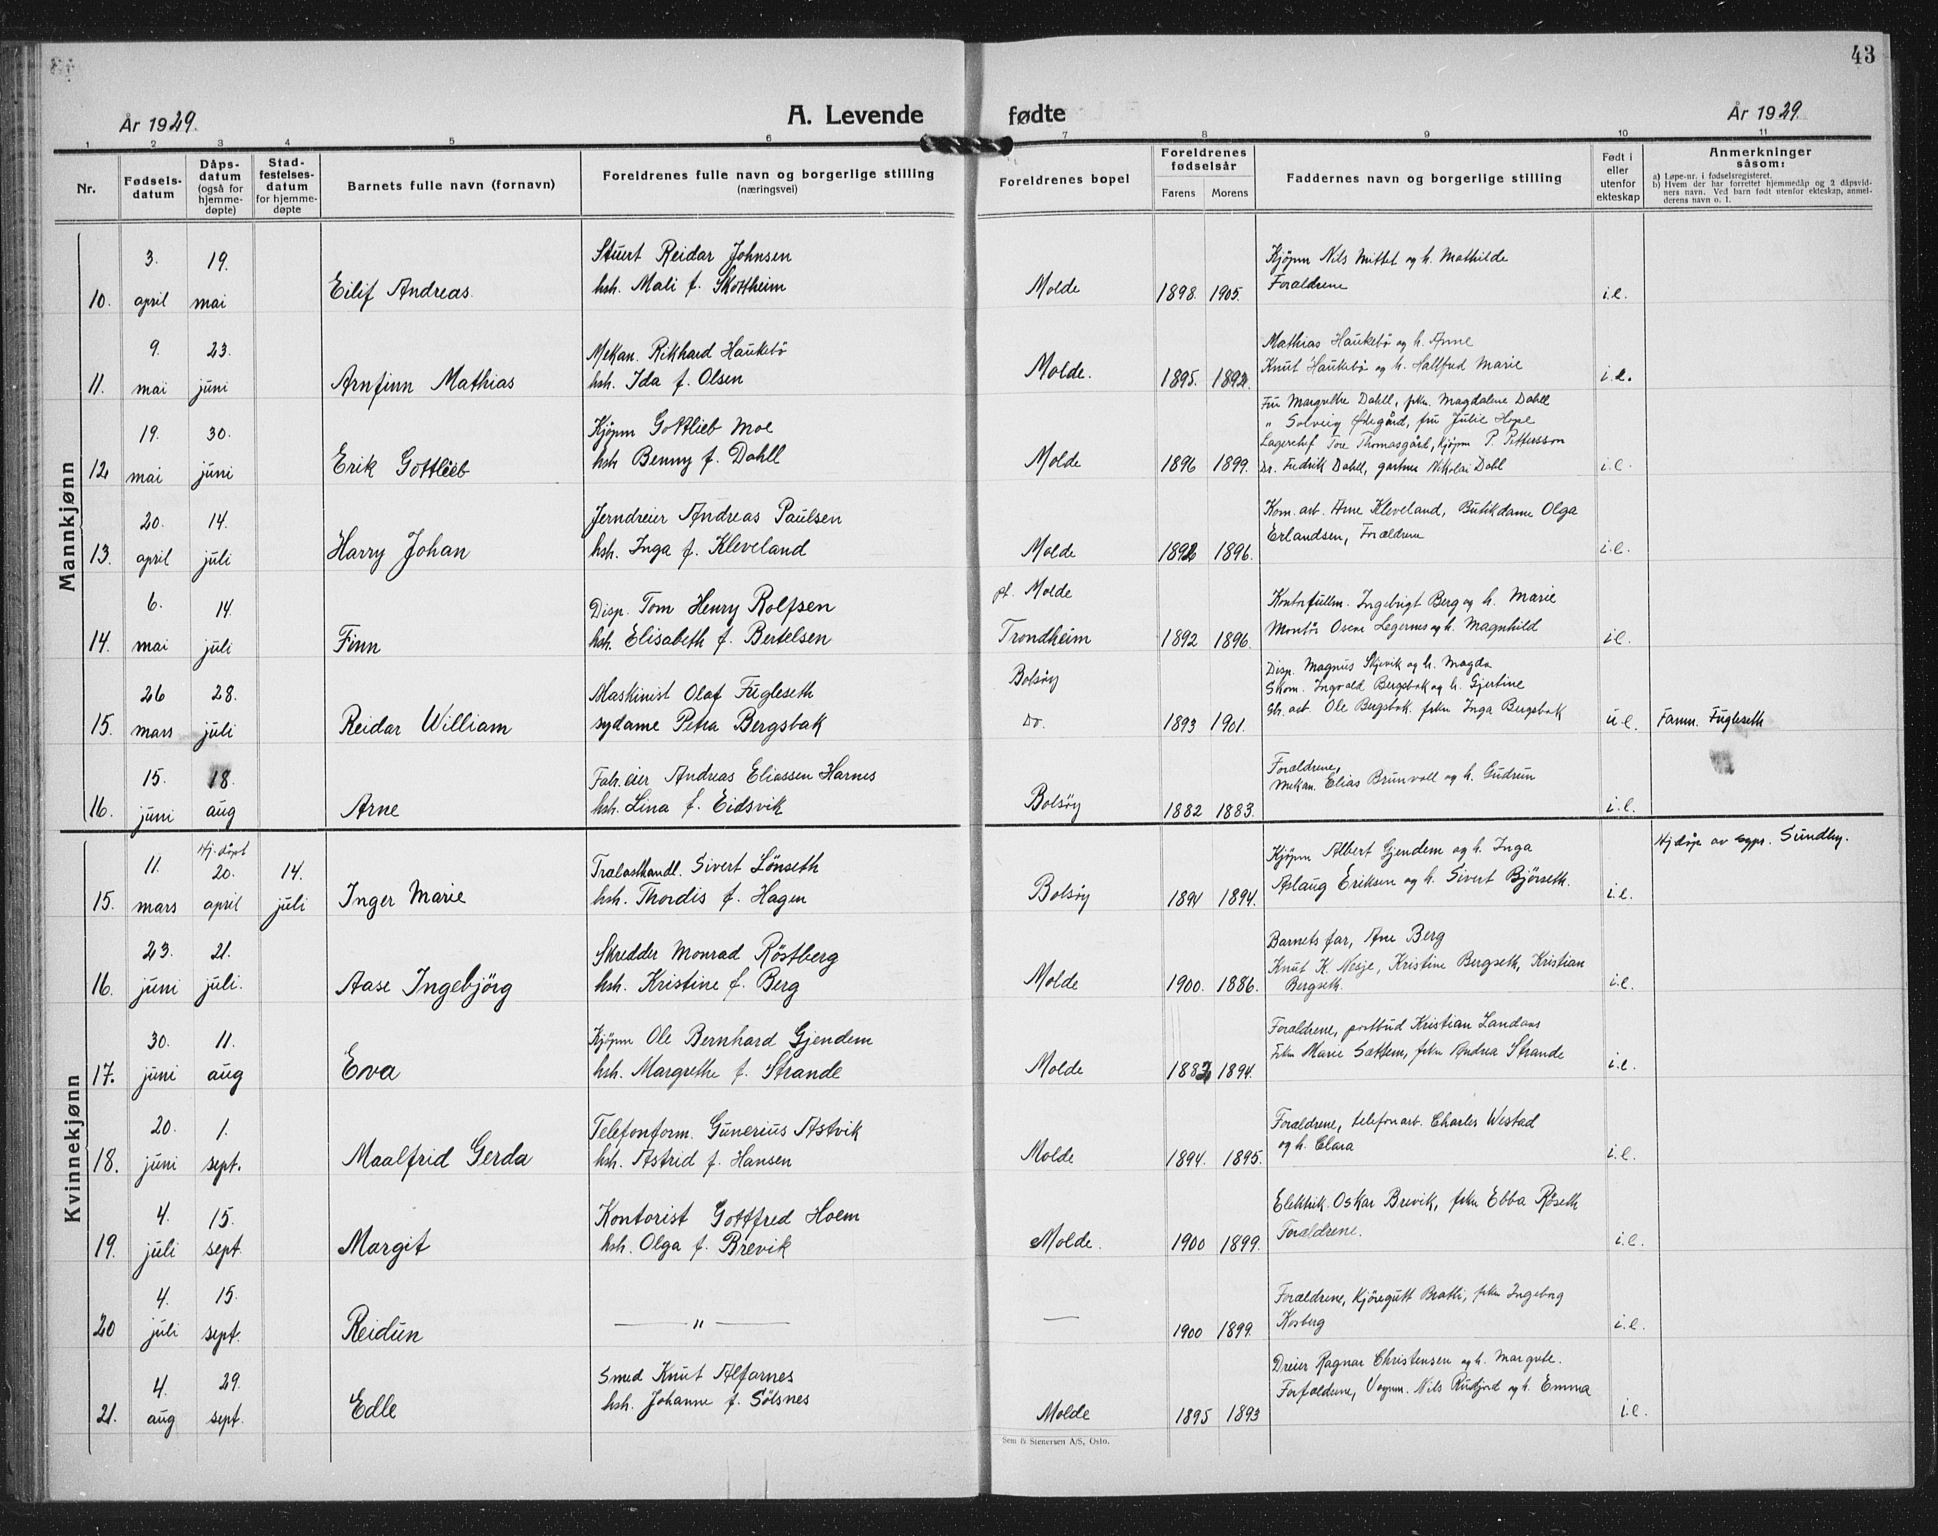 43
År 1929.
A. Levende fødte
År 1929.
1 2 3 4 5 6 7 8 9 10 11
Nr.
Fødselsdatum
Dåpsdatum (også for hjemmedøpte)
Stadfestelsesdatum for hjemmedøpte
Barnets fulle navn (fornavn)
Foreldrenes fulle navn og borgerlige stilling (næringsvei)
Foreldrenes bopel
Foreldrenes fødselsår
Farens Morens
Faddernes navn og borgerlige stilling
Født i eller utenfor ekteskap
Anmerkninger såsom:
a) Løpe-nr. i fødselsregisteret.
b) Hvem der har forrettet hjemmedåp og 2 dåpsvidners navn. Ved barn født utenfor ekteskap, anmelderens navn o. l.
Mannkjønn
10. 3. april 19. mai Eilif Andreas
Stuert Reidar Johnsen
hsh. Mali f. Skottheim
Molde 1898. 1905.
Kjøpm Nils Mittet og h. Mathilde
Forældrene
i.e.
11. 9. mai 23. juni Arnfinn Mathias
Mekan. Rikhard Haukebö
hsh. Ida f. Olsen
Molde. 1895. 1892.
Mathias Haukebö og h. Anne
Knut Haukebö og h. Hallfred Marie
i.e.
12 19. mai 30. juni Erik Gottlieb
Kjöpm Gottlieb Moe
hsh Benny f. Dahll
Molde 1896 1899.
Fru Margrethe Dahll, frkn. Magdalene Dahll
" Solveig Ødegård, fru Julie Hope
Lagerchef Tore Thomasgård, Kjøpm P. Pettersson
Dr. Fredrik Dahll, gartner Nikolai Dahl
i.e.
13. 20. april 14. juli Harry Johan
Jerndreier Andreas Paulsen
hsh. Inga f. Kleveland
Molde 1892 1896.
Kom. arb. Arne Kleveland, Butikdame Olga
Erlandsen, Forældrene
i.e.
14. 6. mai 14. juli Finn
Disp. Tom Henry Rolfsen
hsh. Elisabeth f. Bertelsen
pt. Molde
Trondheim 1892 1896.
Kontorfullm. Ingebrigt Berg og h. Marie
Montör Oscar Legernes og h. Magnhild
i.e.
15. 26 mars 28. juli Reidar William
Maskinist Olaf Fugleseth
sydame Petra Bergsbak
Bolsöy
Do. 1893 1901.
Disp. Magnus Skjevik og h. Magda
Skom. Ingvald Bergsbak og h. Gjertine
arb Ole Bergsbak. frkn Inga Bergsbak
u.e. Famn. Fugleseth
16. 15. juni 18. aug Arne
Fabr.eier Andreas Eliassen Harnes
hsh. Lina f. Eidsvik
Bolsöy 1882 1883.
Forældrene,
Mekan. Elias Brunvoll og h. Gudrun
i.e.
Kvinnekjønn
15. 11. mars Hj. döpt 20. april 14. juli Inger Marie
Trælasthandl. Sivert Lönseth
hsh. Thordis f. Hagen
Bolsöy 1894 1894.
Kjöpm Albert Gjendem og h. Inga
Aslaug Eriksen og h. Sivert Björseth.
i.e. Hj döp av sgpr. Sundby.
16. 23. juni 21. juli. Aase Ingebjörg
Skredder Monrad Röstberg
hsh. Kristine f. Berg
Molde 1900. 1886.
Barnets far, Ane Berg
Knut K. Nesje, Kristine Bergseth, Kristian
Bergseth.
i.e.
17. 30. juni 11. aug Eva
Kjöpm Ole Bernhard Gjendem
hsh. Margrethe f. Strande
Molde 1894.
Forældrene, postbud Kristian Landaas
Frkn Marie Sættem, frkn Andrea Strande
i.e.
18. 20. juni 1. sept. Maalfrid Gerda
Telefonform. Gunerius Astvik
hsh. Astrid f. Hansen
Molde 1894. 1895.
Forældrene, telefonarb. Charles Westad
og h. Clara
i.e.
19. 4. juli 15. sept. Margit
Kontorist Gottfred Hoem
hsh. Olga f. Brevik
Molde. 1900 1899.
Elektrik. Oskar Brevik, frkn Ebba Röseth
Forældrene.
i.e.
20 4. juli 15. sept. Reidun
— " —
— 1900 1899.
Forældrene, Kjöregutt Bratli, frkn Ingeborg
Kosberg
i.e.
21. 4. aug 29. sept. Edle
Smed Knut Alfarnes
hsh. Johanne f. Sölsnes
Molde 1895 1893
Dreier Ragnar Christensen og h. Margrete.
Forfældrene, Vognm. Nils Rudjord og h. Emma
i.e.
Sem & Stenersen A/S, Oslo.